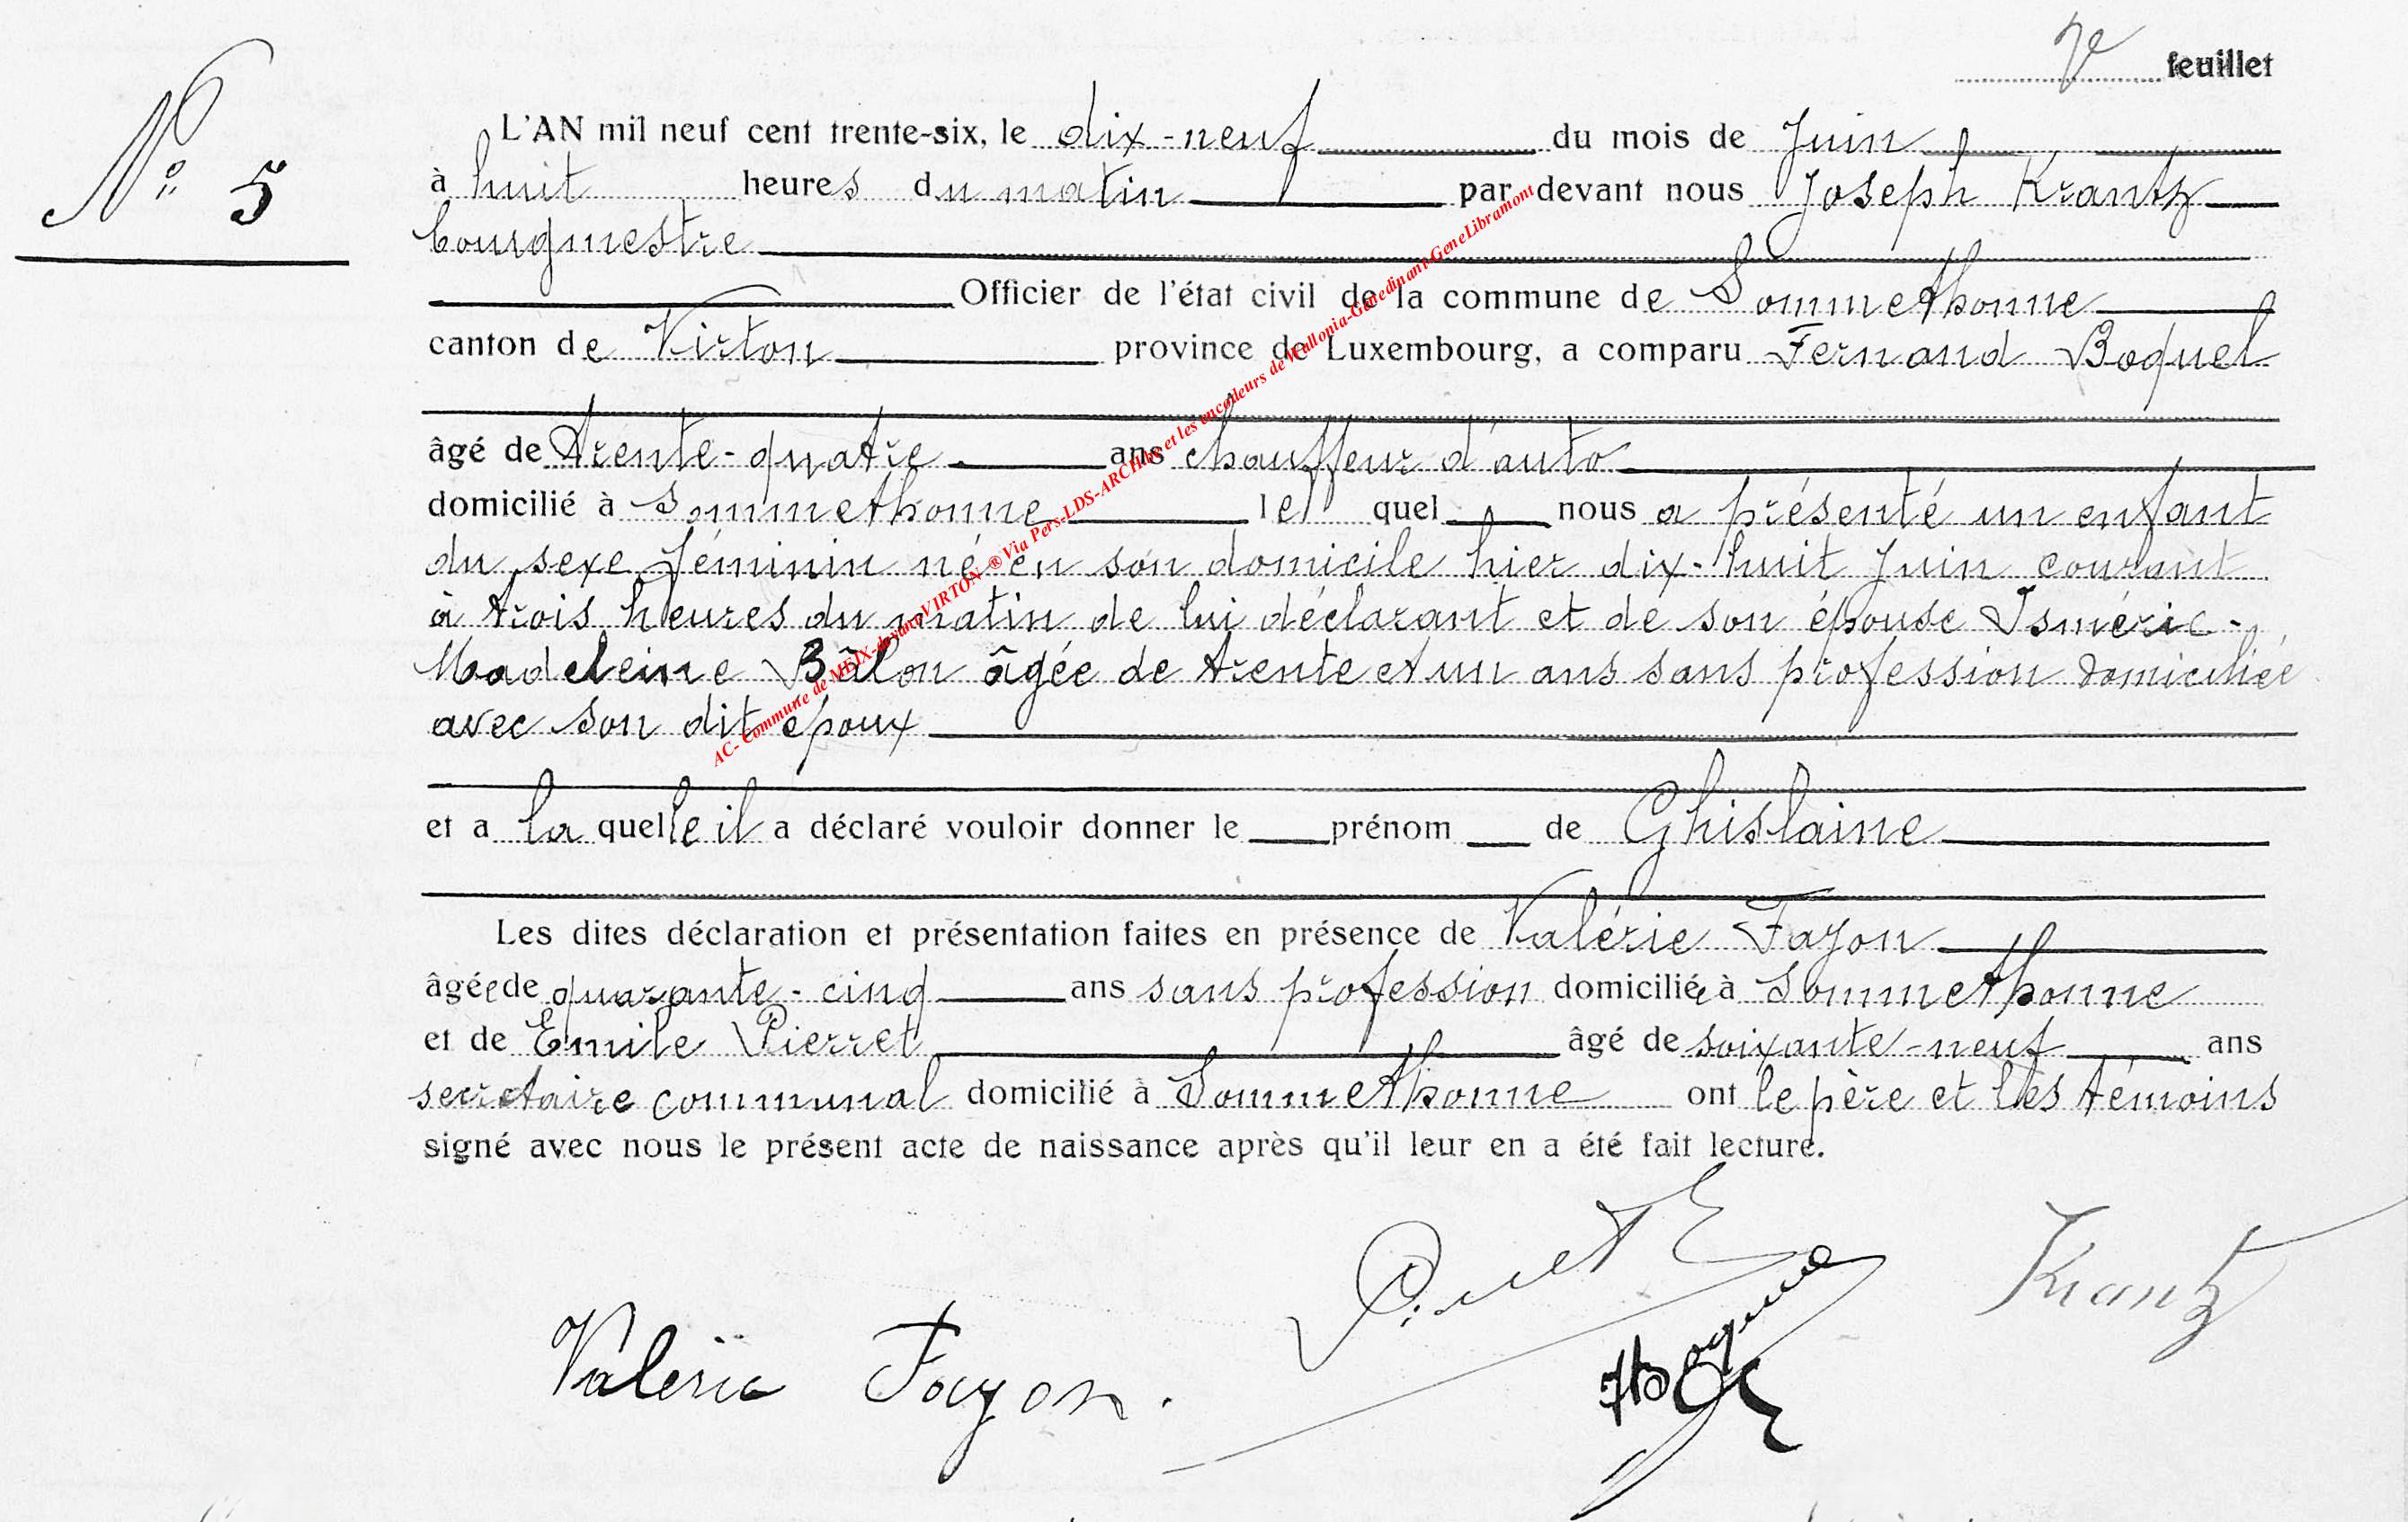 7e feuillet
N° 5
L'AN mil neuf cent trente-six, le dix-neuf du mois de Juin
à huit heures du matin par devant nous Joseph Krantz
bourgmestre
Officier de l'état civil de la commune de Sommethonne
canton de Virton province de Luxembourg, a comparu Fernand Boquel
âgé de trente-quatre ans chauffeur d'auto
domicilié à Sommethonne lequel nous a présenté un enfant
du sexe féminin né en son domicile hier dix-huit Juin courant
à trois heures du matin de lui déclarant et de son épouse Isméric-
Madeleine Bâlon âgée de trente et un ans sans profession domiciliée
avec son dit époux
et a la quelle il a déclaré vouloir donner le prénom de Ghislaine
Les dites déclaration et présentation faites en présence de Valérie Fayon
âgée de quarante-cinq ans sans profession domiciliée à Sommethonne
et de Emile Pierret âgé de soixante-neuf ans
secrétaire communal domicilié à Sommethonne ont le père et les témoins
signé avec nous le présent acte de naissance après qu'il leur en a été fait lecture.
Valérie Fayon.
Krantz
AC- Commune de MEIX-devant-VIRTON ® Via Pers-LDS-ARCHives et les encodeurs de Wallonia-Genedinant-GeneLibramont